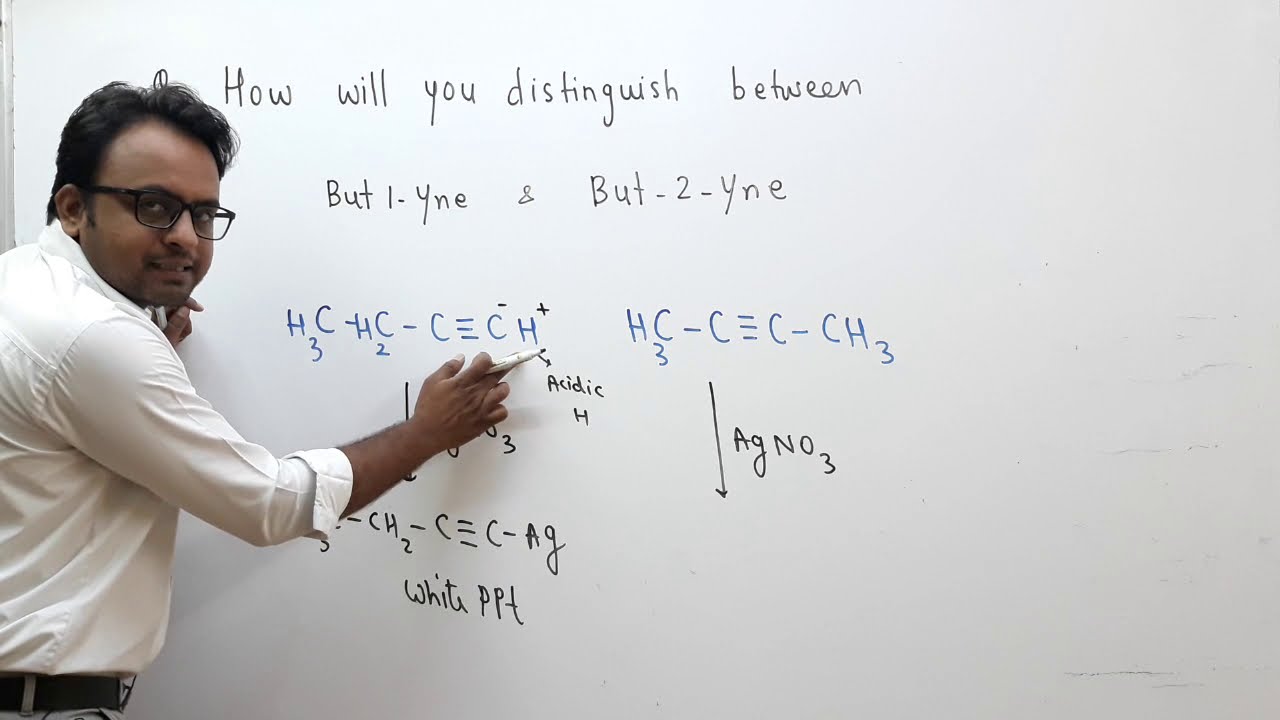 How will you distinguish between
But 1-Yne & But-2-Yne
H₃C-H₂C-C≡C⁻H⁺ H₃C-C≡C-CH₃
Acidic
H
AgNO₃
-CH₂-C≡C-Ag
White PPt